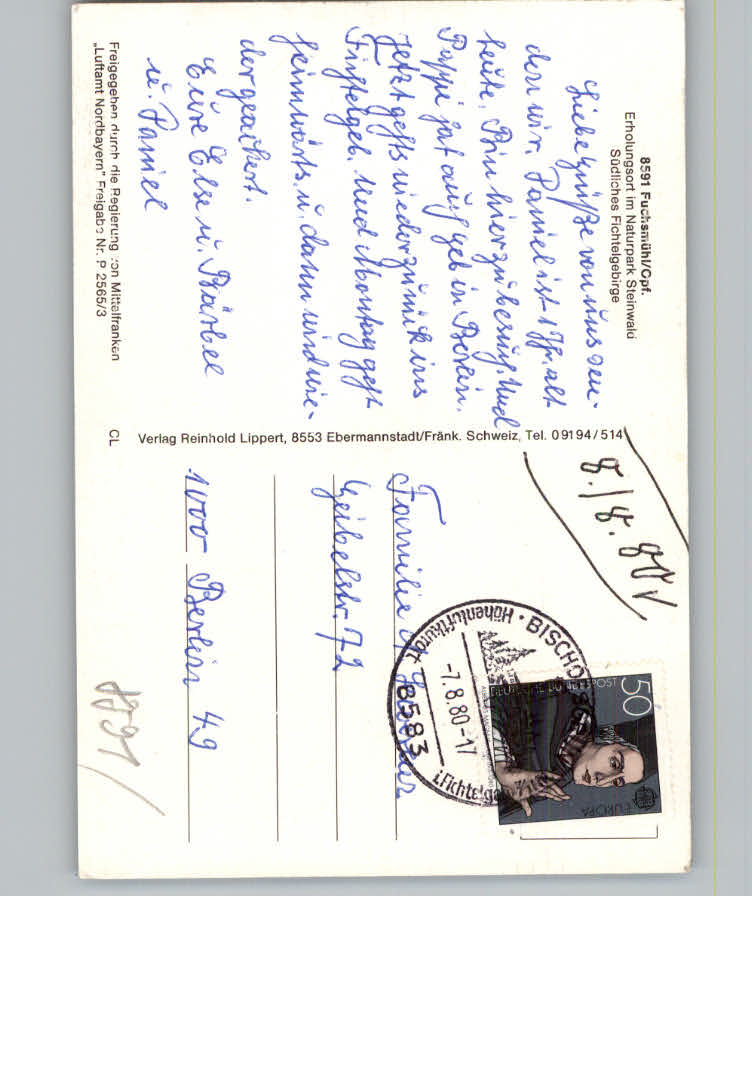 8591 Fuchsmühl/Opf.
Erholungsort im Naturpark Steinwald
Südliches Fichtelgebirge
Liebe Grüße von uns sen-
den wir. Daniel ist 1 J. alt
heute. Bin hier zu Besuch. Und
Pappi hat auch geb in Berlin.
Jetzt gehts wieder zurück ins
Fichtelgeb. Und Montag geht
heimwärts. u. dann wird wie-
der geackert.
Eure Else u. Bärbel
u. Daniel
Freigegeben durch die Regierung von Mittelfranken
„Luftamt Nordbayern" Freigabe Nr. P 2565/3
CL
Verlag Reinhold Lippert, 8553 Ebermannstadt/Fränk. Schweiz, Tel. 09194/514
8./8. 80
DEUTSCHE BUNDESPOST
50
EUROPA
BISCHOFSGRÜN
Höhenluftkurort
-7.8.80-17
8583
i. Fichtelgeb.
Familie
Geibelstr. 72
1000 Berlin 49
8591